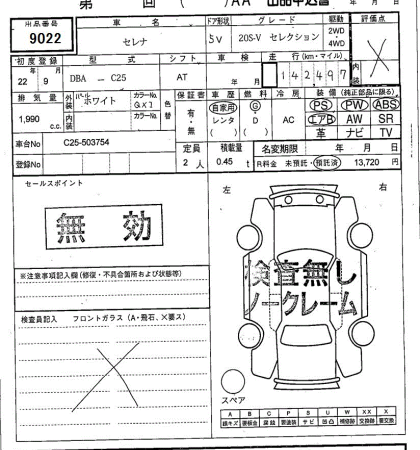 第　　回（　　）AA　出品申込書　年　月　日
出品番号　車名　ドア形状　グレード　駆動　評価点
9022　セレナ　5V　20S-V セレクション　2WD・4WD
初度登録　型式　シフト　車検　走行(km・マイル)　内装
22年9月　DBA － C25　AT　年　月　14297
排気量　外装　パール　カラーNo　色替　保証書　車歴　燃料　冷房　装備(純正部品に限る)
1,990 c.c.　ホワイト　GX1　有・無　自家用　G　AC　PS　PW　ABS
内装　カラーNo　レンタ　D　エアB　AW　SR
（　）（　）　革　ナビ　TV
車台No　C25-503754　定員　積載量　名変期限　年　月　日
登録No　2人　0.45 t　R料金　未預託・預託済　13,720 円
セールスポイント　左　右
無効
検査無し
ノークレーム
※注意事項記入欄(修復・不具合箇所および状態等)
検査員記入　フロントガラス(A・飛石、X要ス)
スペア
A　B　C　P　S　U　W　XX　X
線キズ　要板金　腐蝕　要塗装　サビ　凹凸　補修跡　交換跡　要交換